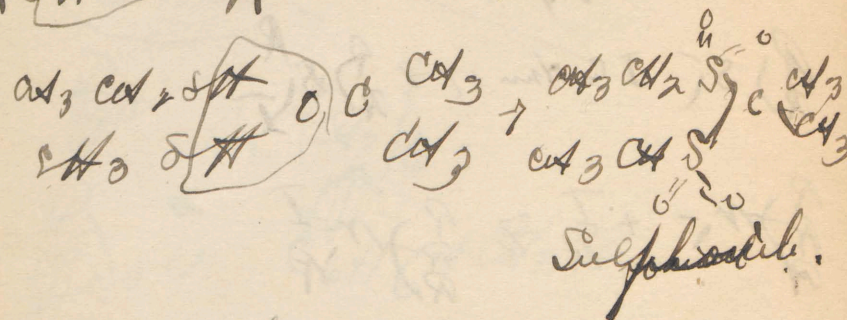 O O
CH3 CH2 SH O C CH3 → CH3 CH2 S C CH3
CH3 SH CH3 CH3 CH S CH3
O O